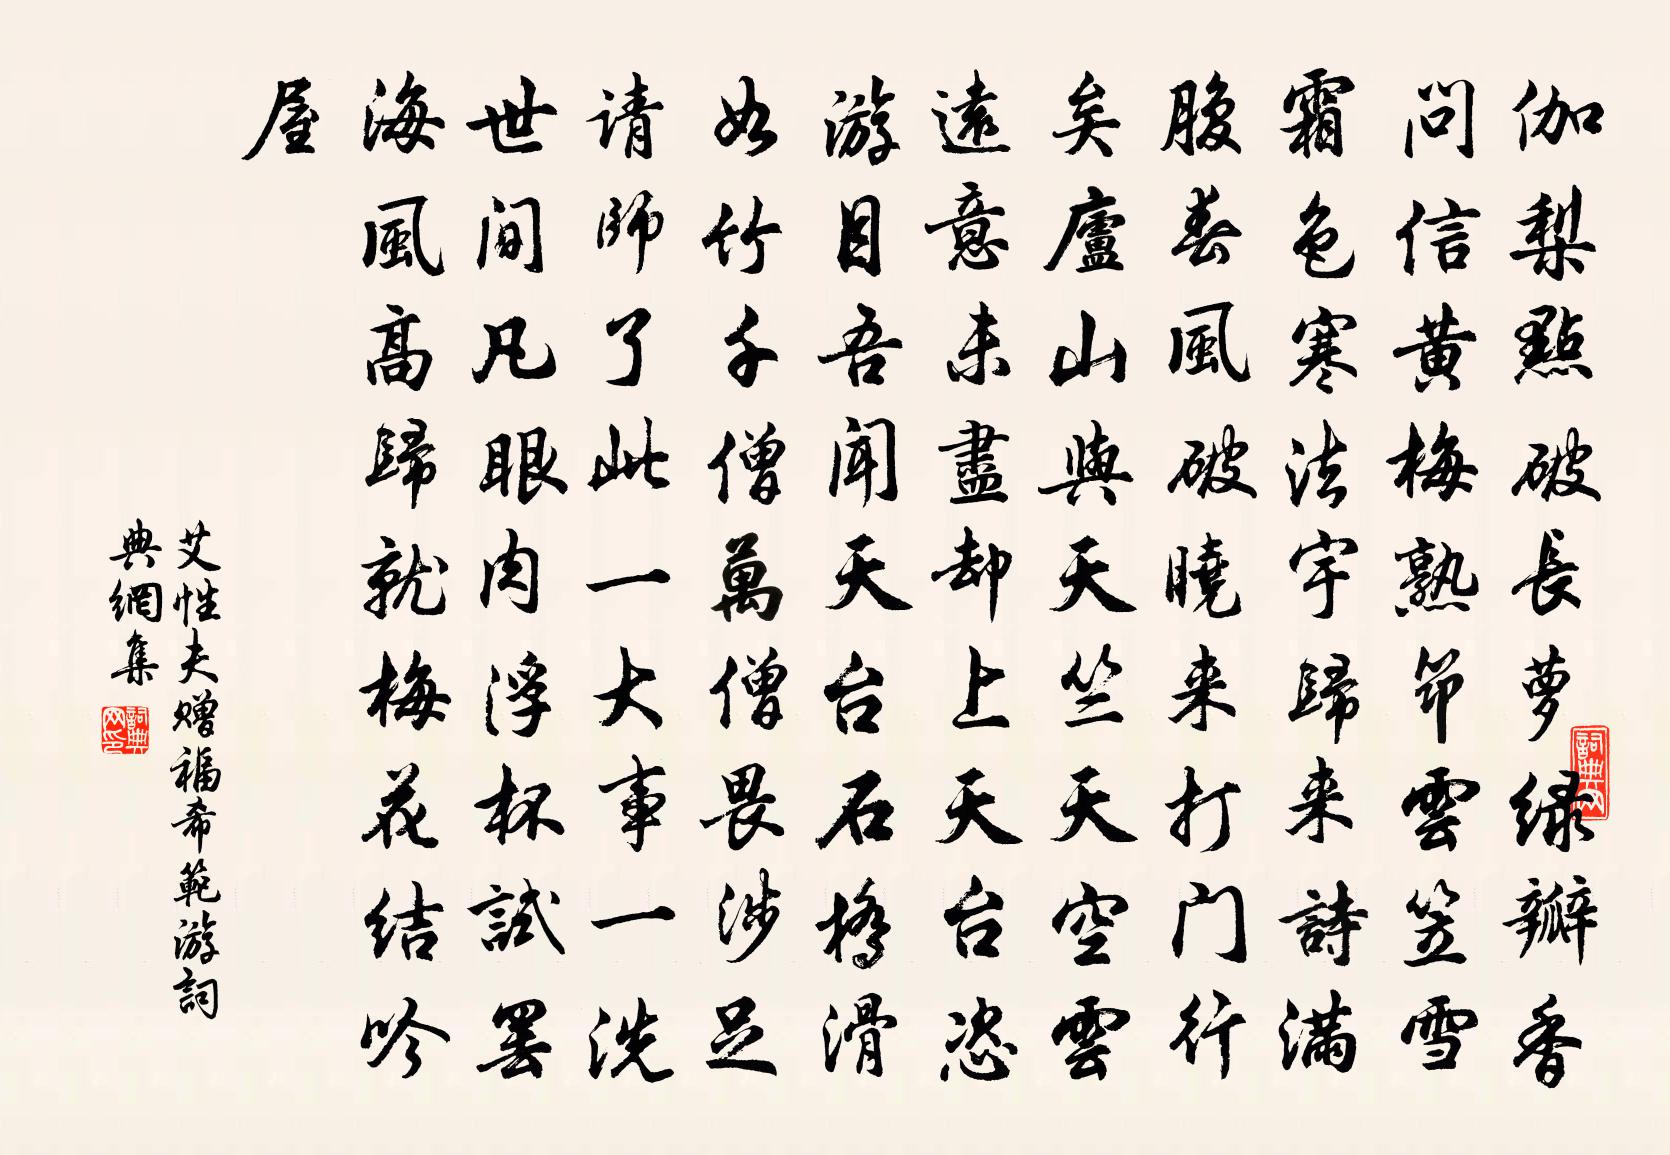 伽梨點破長萝绿瓣香
問信黄梅熟笻雲笠雪
霜色寒法宇歸来詩满
腹春風破曉来打门行
矣廬山與天竺天空雲
遠意未盡却上天台恣
游目吾闻天台石橋滑
如竹千僧萬僧畏涉足
请師了此一大事一洗
世间凡眼肉浮杯試罢
海風高歸就梅花结吟
屋
艾性夫赠福希範游詞
典網集
詞典网
詞典网印